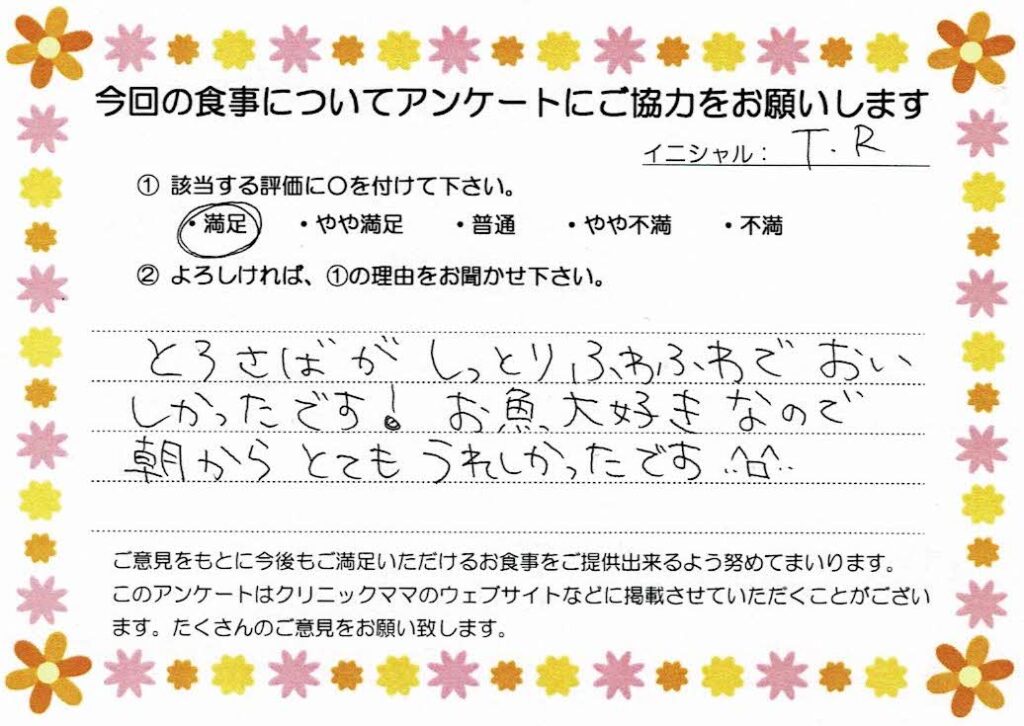 今回の食事についてアンケートにご協力をお願いします
イニシャル： T.R
① 該当する評価に〇を付けて下さい。
・満足 ・やや満足 ・普通 ・やや不満 ・不満
② よろしければ、①の理由をお聞かせ下さい。
とろさばが しっとりふわふわで おい
しかったです! お魚大好きなので
朝から とても うれしかったです ..^ロ^..
ご意見をもとに今後もご満足いただけるお食事をご提供出来るよう努めてまいります。
このアンケートはクリニックママのウェブサイトなどに掲載させていただくことがござい
ます。たくさんのご意見をお願い致します。